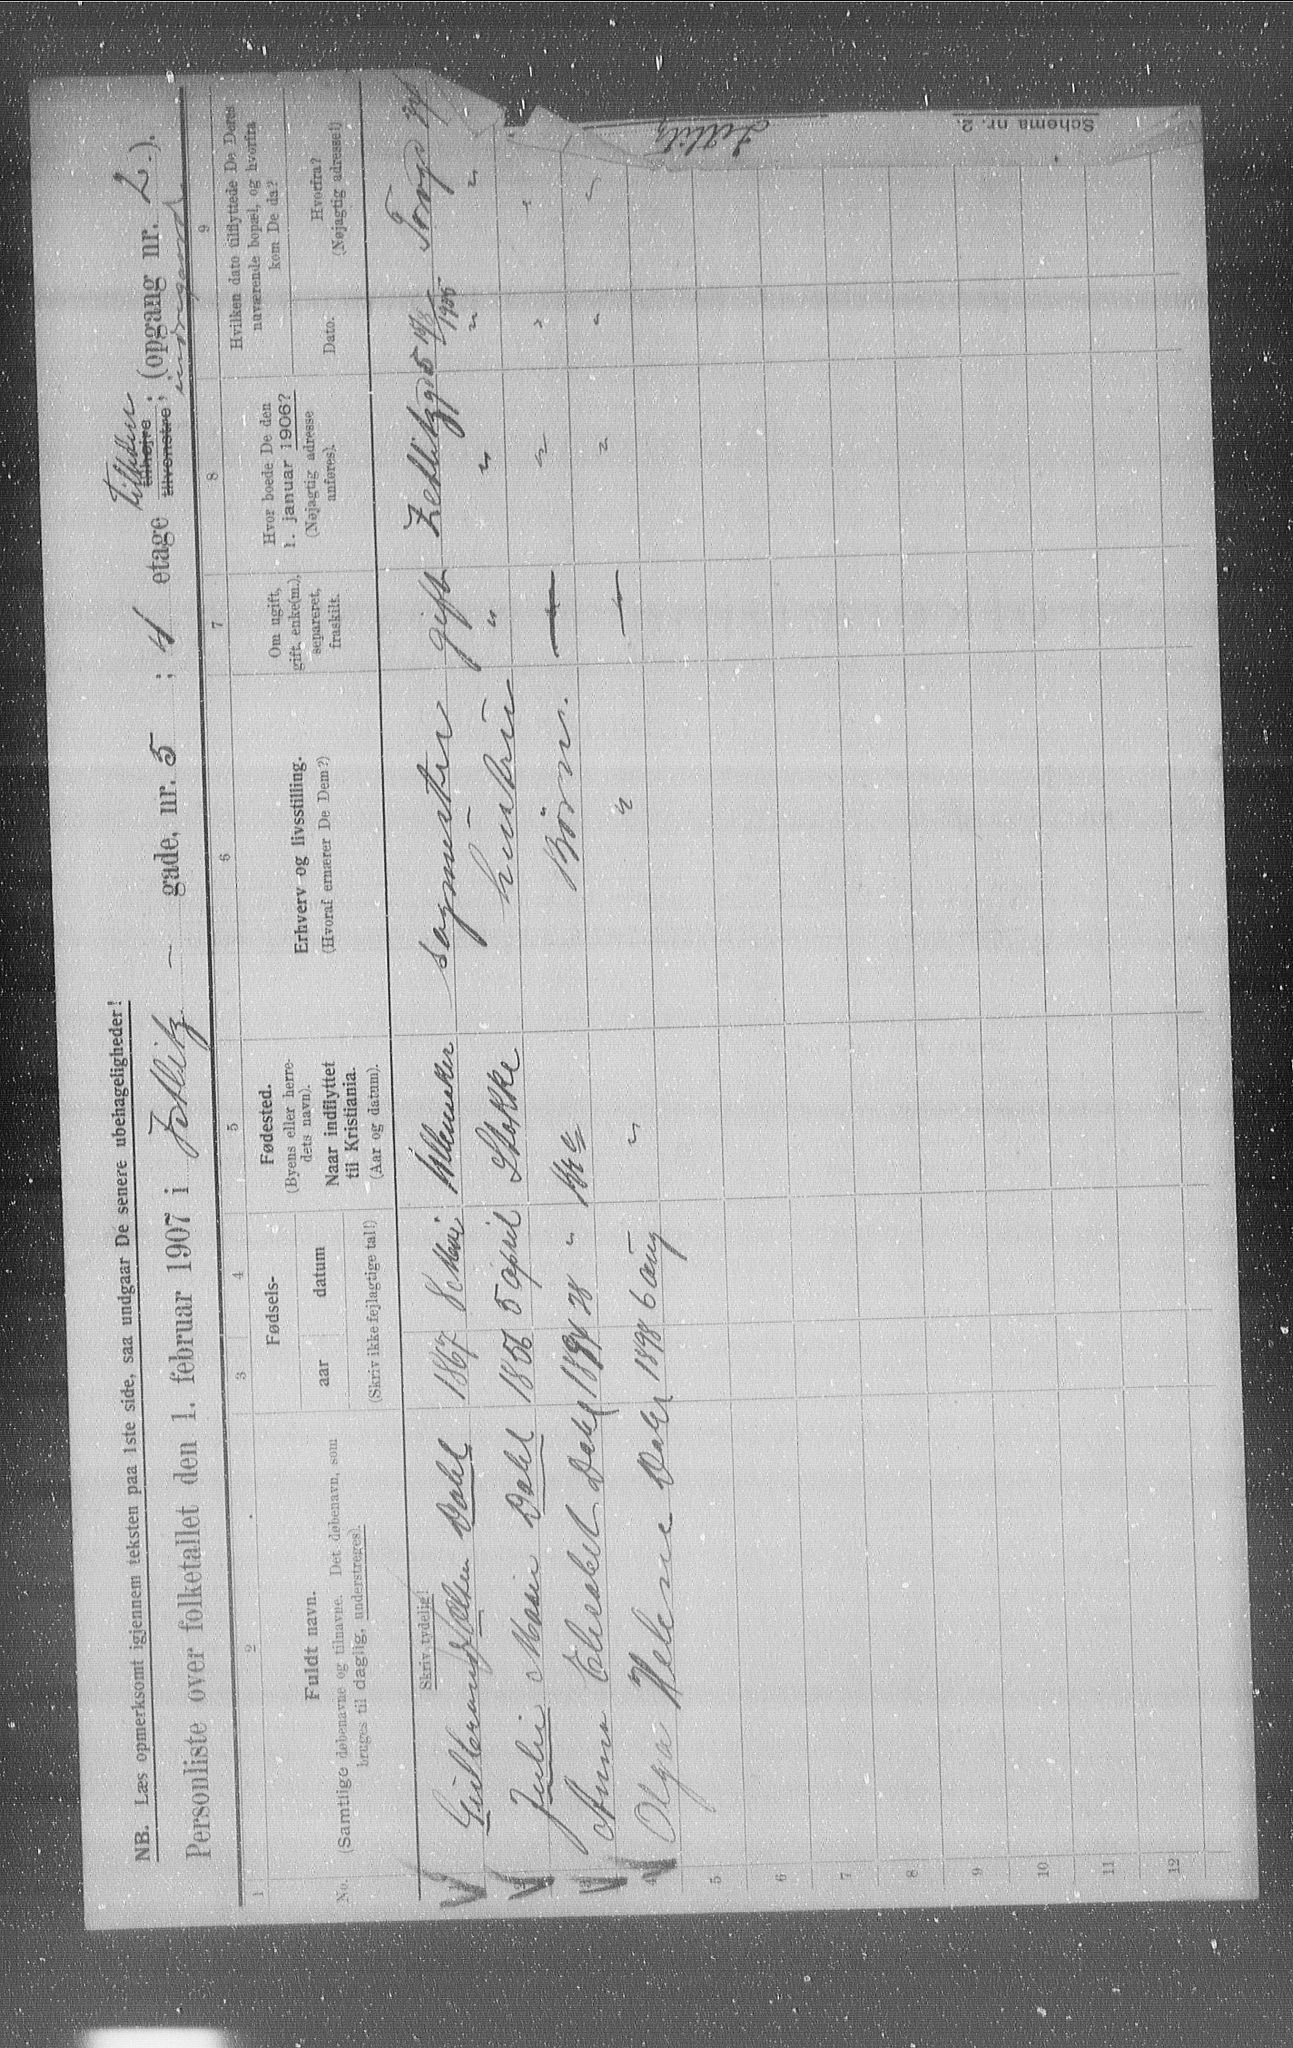 NB. Læs opmerksomt igjennem teksten paa 1ste side, saa undgaar De senere ubehageligheder!
Personliste over folketallet den 1. februar 1907 i Zetlitz – gade, nr. 5 ; 4 etage tilhøire tilvenstre; (opgang nr. 2.).
1 2 3 4 5 6 7 8 9
No.
Fuldt navn.
(Samtlige døbenavne og tilnavne. Det døbenavn, som
bruges til daglig, understreges).
Fødsels-
aar datum
(Skriv ikke fejlagtige tal!)
Fødested.
(Byens eller herre-
dets navn).
Naar indflyttet
til Kristiania.
(Aar og datum).
Erhverv og livsstilling.
(Hvoraf ernærer De Dem?)
Om ugift,
gift, enke(m.),
separeret,
fraskilt.
Hvor boede De den
1. januar 1906?
(Nøjagtig adresse
anføres).
Hvilken dato tilflyttede De Deres
nuværende bopæl, og hvorfra
kom De da?
Dato.
Hvorfra?
(Nøjagtig adresse!)
Skriv tydelig!
1 Olsen Dahl 1867 8 Mai Ullensaker gift Zetlitzgd 5 1905
2 Julie Marie Dahl 1856 5 april Stokke hustru " " " "
3 Anna Elisabet Dahl 1894 28 " Kra Börn. — " " "
4 Olga Helene Dahl 1898 6 aug " " — " " "
5
6
7
8
9
10
11
12
Schema nr. 2.
Zetlitz